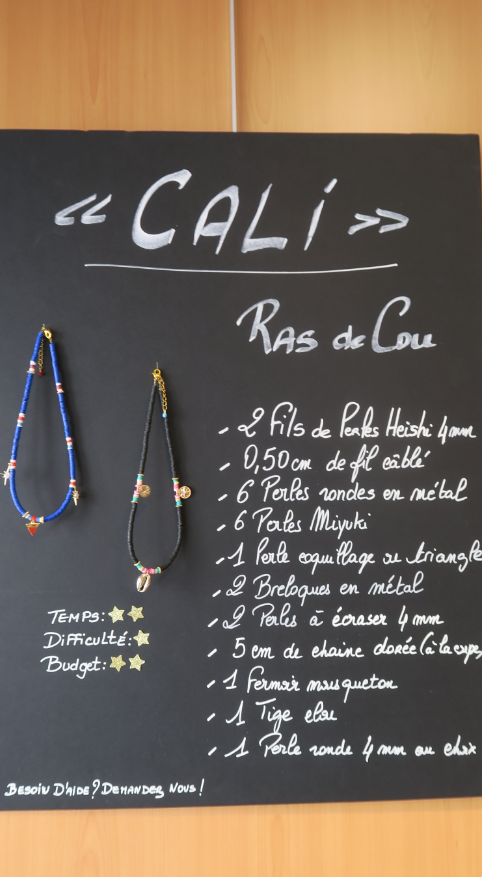 « CALI »
Ras de Cou
- 2 Fils de Perles Heishi 4mm
- 0,50 cm de fil câblé
- 6 Perles rondes en métal
- 6 Perles Miyuki
- 1 Perle coquillage ou triangle
- 2 Breloques en métal
- 2 Perles à écraser 4 mm
- 5 cm de chaine dorée (à la coupe)
- 1 Fermoir mousqueton
- 1 Tige clou
- 1 Perle ronde 4 mm au choix
Temps:
Difficulté:
Budget:
Besoin d'aide? Demandez nous!